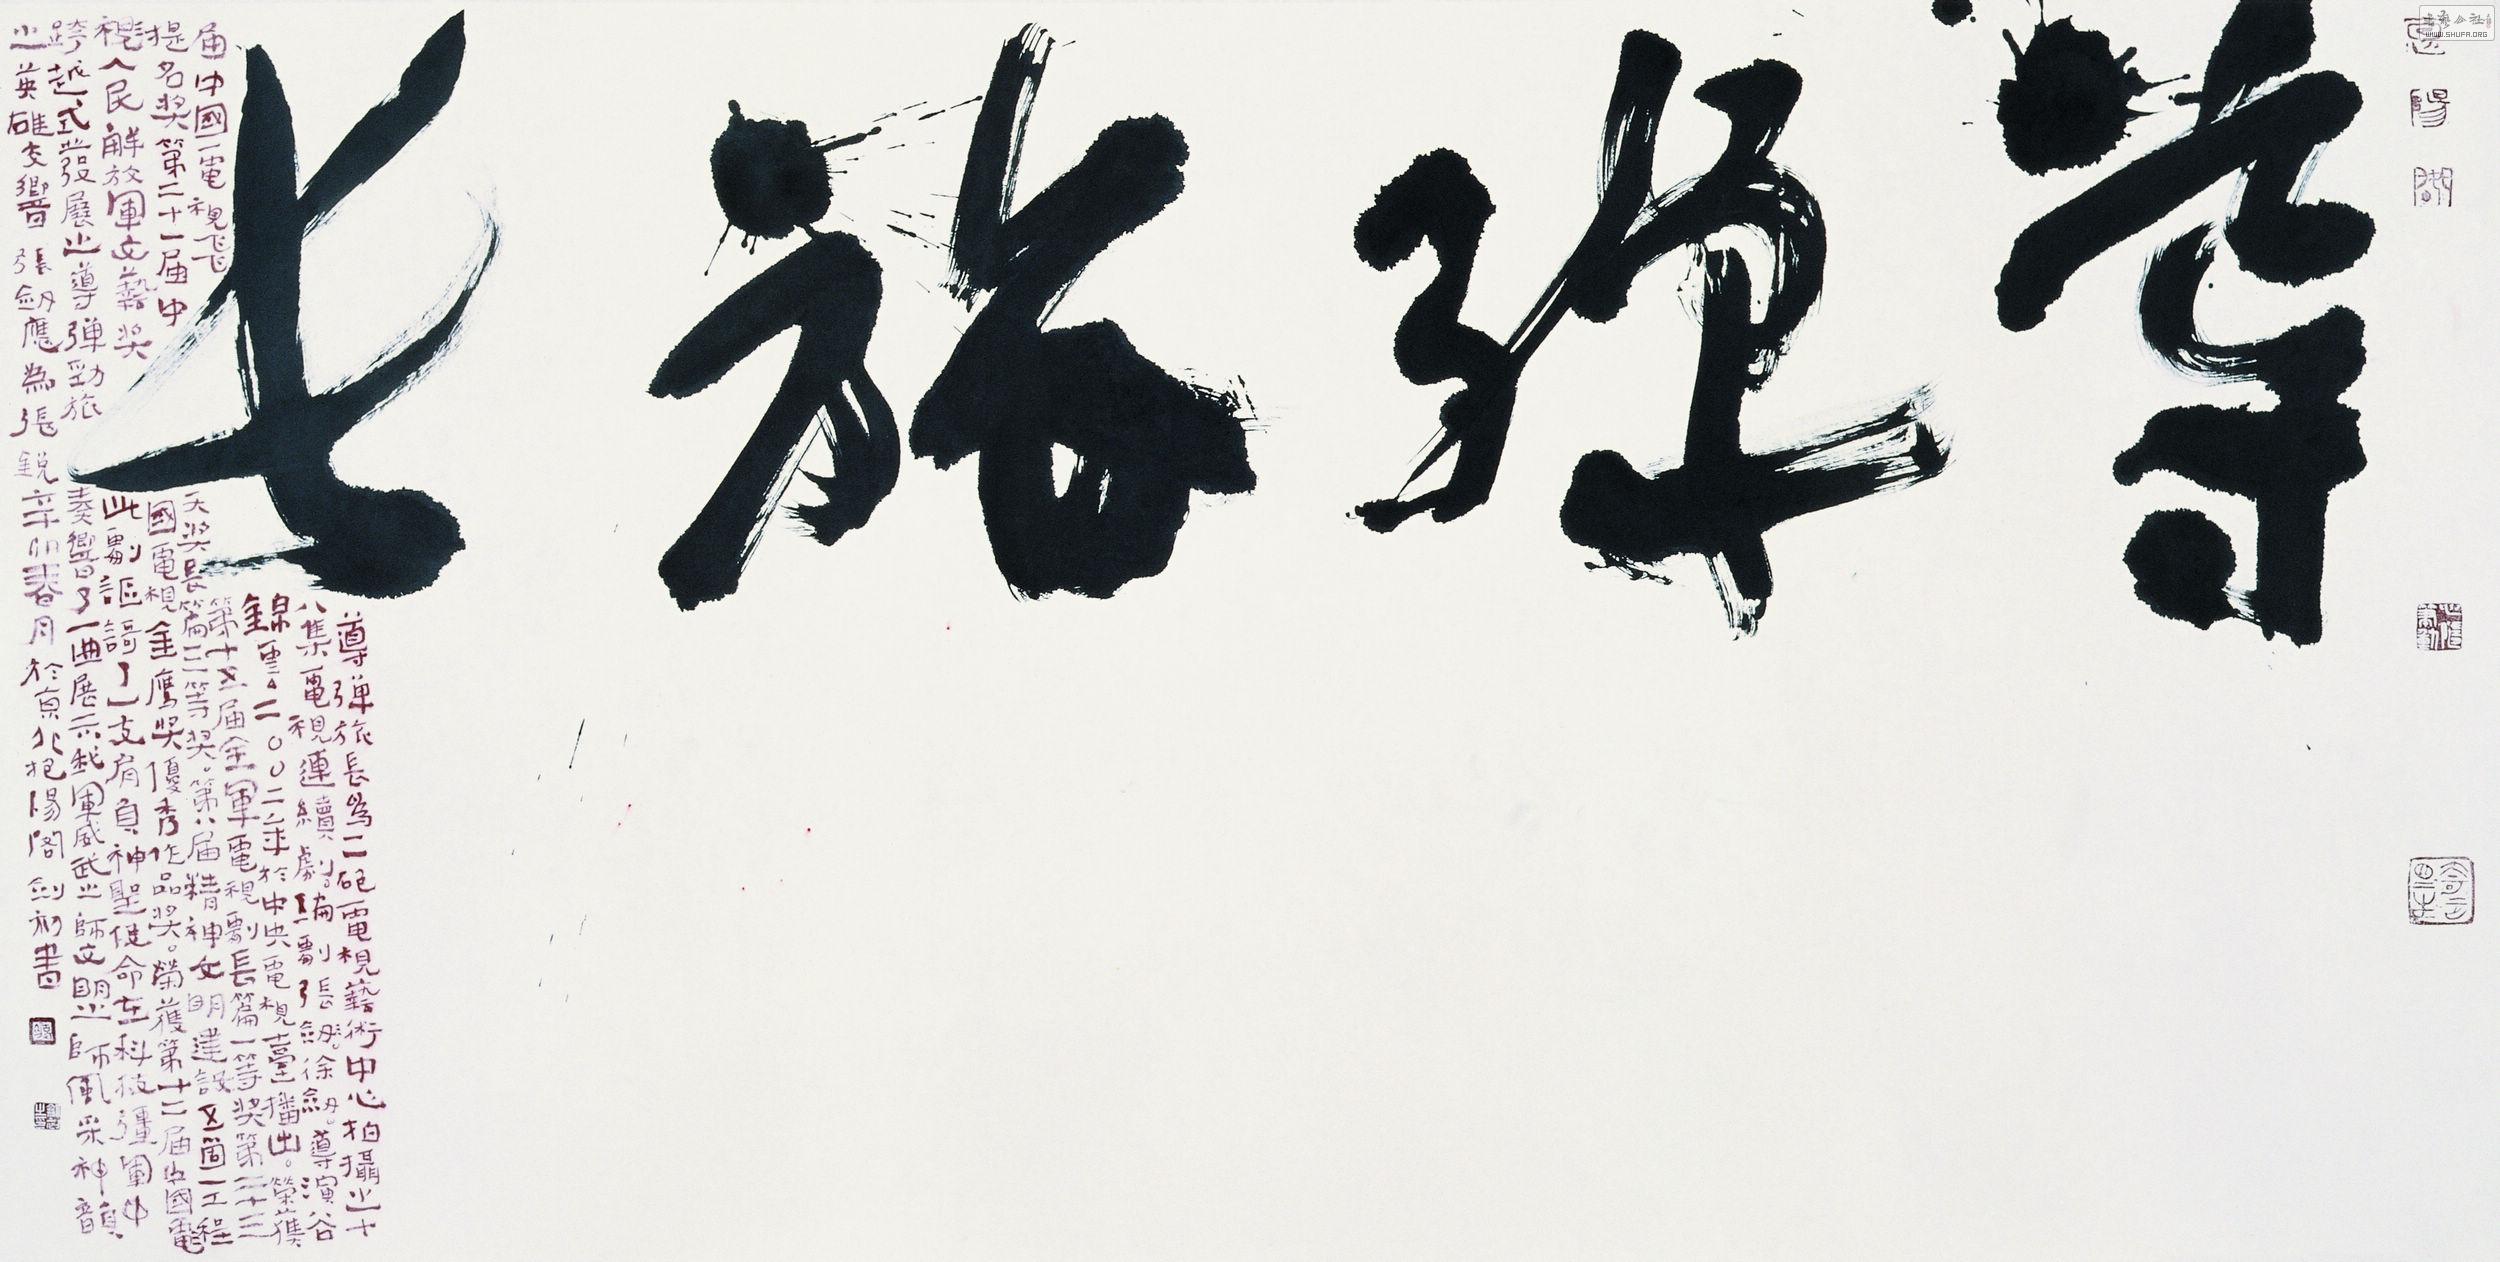 導彈旅長
導弹旅長為二砲電視藝術中心拍攝之十
八集電視連續劇。編劇張劔。徐劔。導演谷
錦雲。二〇〇二年於中央電視臺播出。榮獲
第十五届全軍電視劇長篇一等奖第二十三
届中國電視飛天奖長篇三等奖。第八届精神文明建設五個一工程
提名奖第二十一届中國電視金鷹奖優秀作品奖。榮獲第十二届中國電
視人民解放軍文藝奖此劇謳謌了一支肩負神聖使命在科技彊軍中
跨越式發展之導弹勁旅奏響了一曲展示我軍威武之師文明之師風采神韻
之英雄交響 張劔應為張銳辛卯春月於京北抱陽閣劍初書
惠陽閣
WWW.SHUFA.ORG